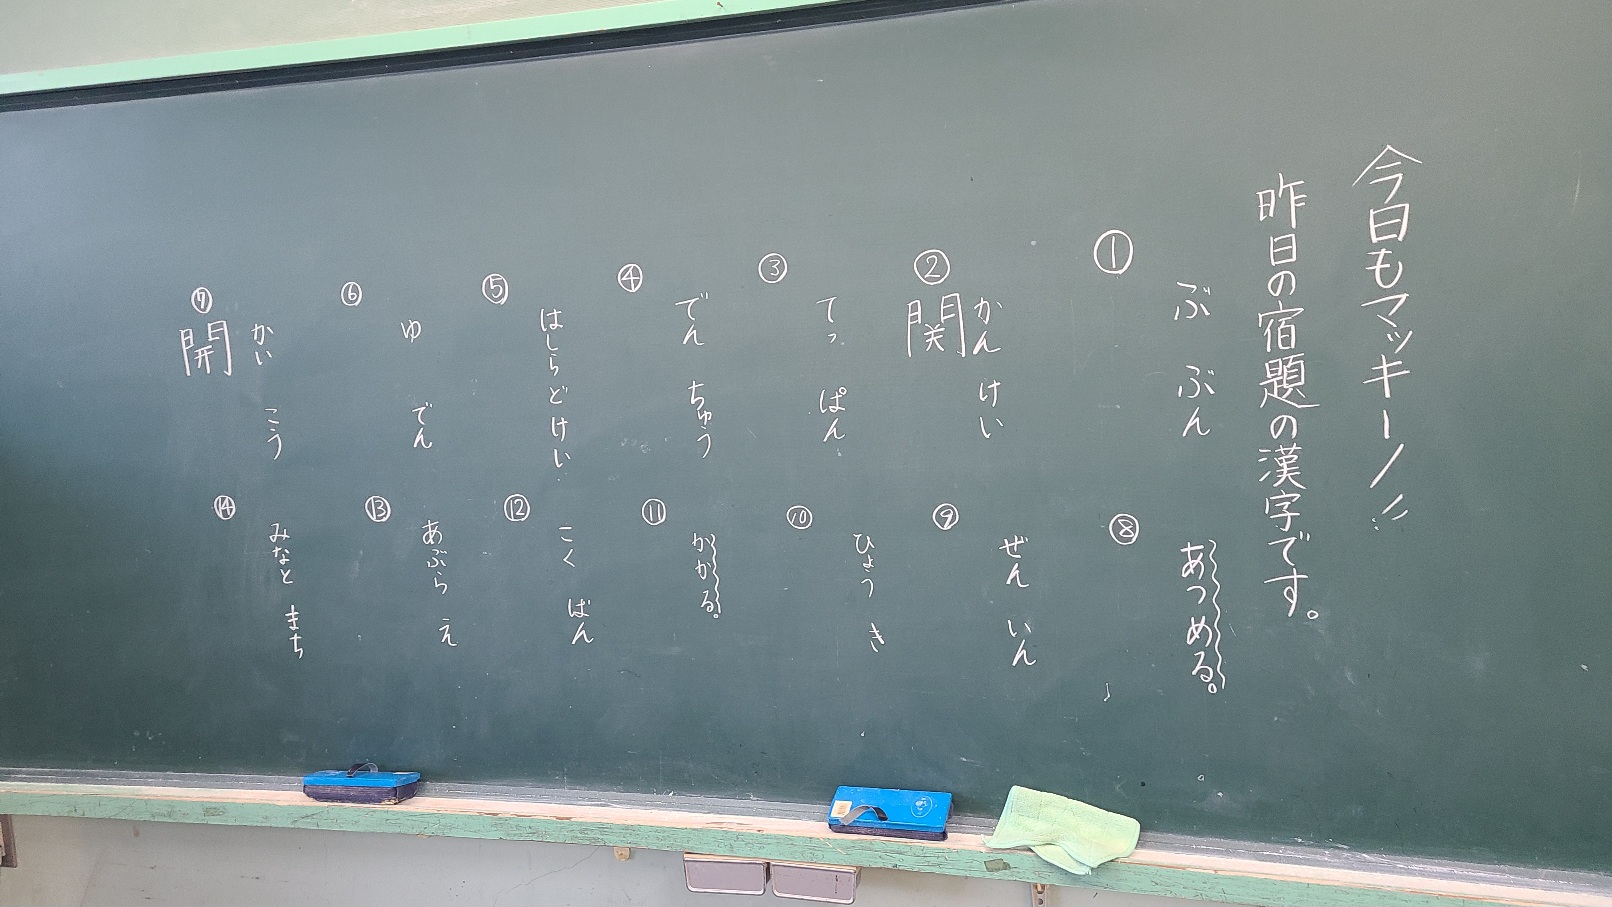 今日もマッキーノ!!
昨日の宿題の漢字です。
①
ぶ ぶん
②
かん けい
関
③
てっ ぱん
④
でん ちゅう
⑤
はしらどけい
⑥
ゆ でん
⑦
かい こう
開
⑧
あつめる。
⑨
ぜん いん
⑩
ひょう き
⑪
かかる。
⑫
こく ばん
⑬
あぶら え
⑭
みなと まち